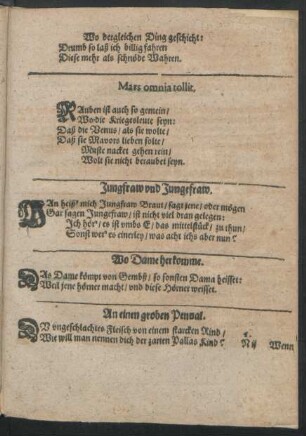 Wo dergleichen Ding geschicht:
Drumb so laß ich billig fahren
Diese mehr als schnöde Wahren.
Mars omnia tollit.
RAuben ist auch so gemein/
Wo die Kriegesleute seyn:
Daß die Venus/ als sie wolte/
Daß sie Mavors lieben solte/
Mußte nacket gehen rein/
Wolt sie nicht beraubet seyn.
Jungfraw vnd Jungefraw.
MAn heiß' mich Jungfraw Braut/ sagt jene/ oder mögen
Gar sagen Jungefraw/ ist nicht viel dran gelegen:
Ich hör'/ es ist vmbs E/ das mittelstück/ zu thun/
Sonst wer' es einerley/ was acht ichs aber nun?
Wo Dame herkomme.
DAs Dame kömpt von Gembß/ so sonsten Dama heisset:
Weil jene hörner macht/ vnd diese Hörner weisset.
An einen groben Pennal.
DV vngeschlachtes Fleisch von einem starcken Rind/
Wie will man nennen dich der zarten Pallas Kind?
N ij Wenn